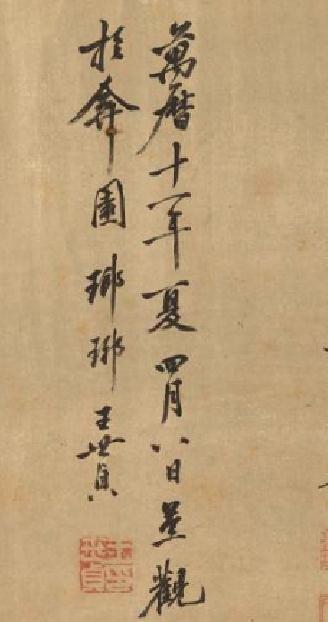 萬曆十一年夏四月八日觀
於弇園瑯琊王世貞